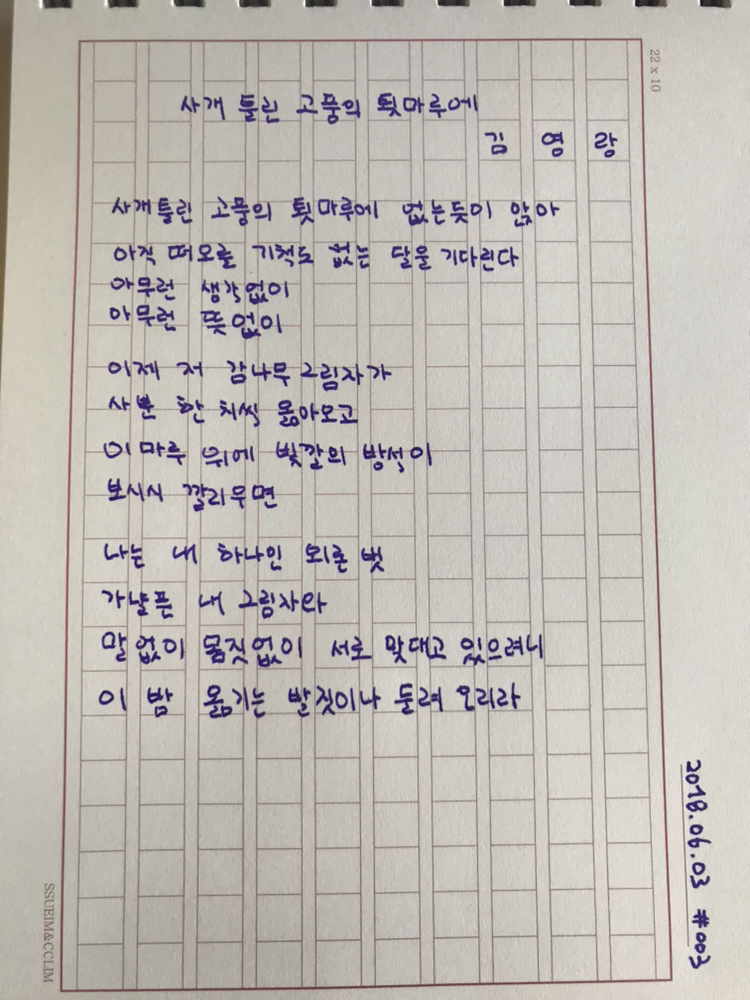 사개 틀린 고풍의 툇마루에
김 영 랑
사개틀린 고풍의 툇마루에 없는듯이 앉아
아직 떠오를 기척도 없는 달을 기다린다
아무런 생각없이
아무런 뜻없이
이제 저 감나무 그림자가
사뿐 한 치씩 옮아오고
이 마루 위에 빛깔의 방석이
보시시 깔리우면
나는 내 하나인 외론 벗
가냘픈 내 그림자와
말없이 몸짓없이 서로 맞대고 있으려니
이 밤 옮기는 발짓이나 들려 오리라
22 x 10
SSUEIM&CCLIM
2018.06.03 #003